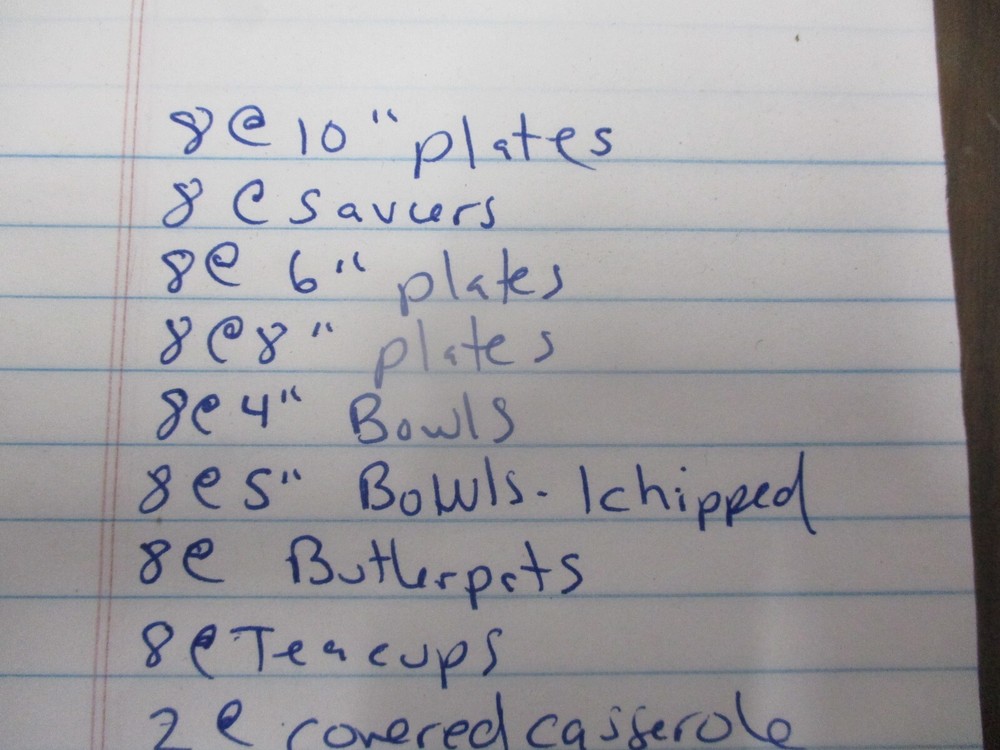 8 @ 10" plates
8 @ saucers
8 @ 6" plates
8 @ 8" plates
8 @ 4" Bowls
8 @ 5" Bowls - 1 chipped
8 @ Butterpats
8 @ Teacups
2 @ covered casserole